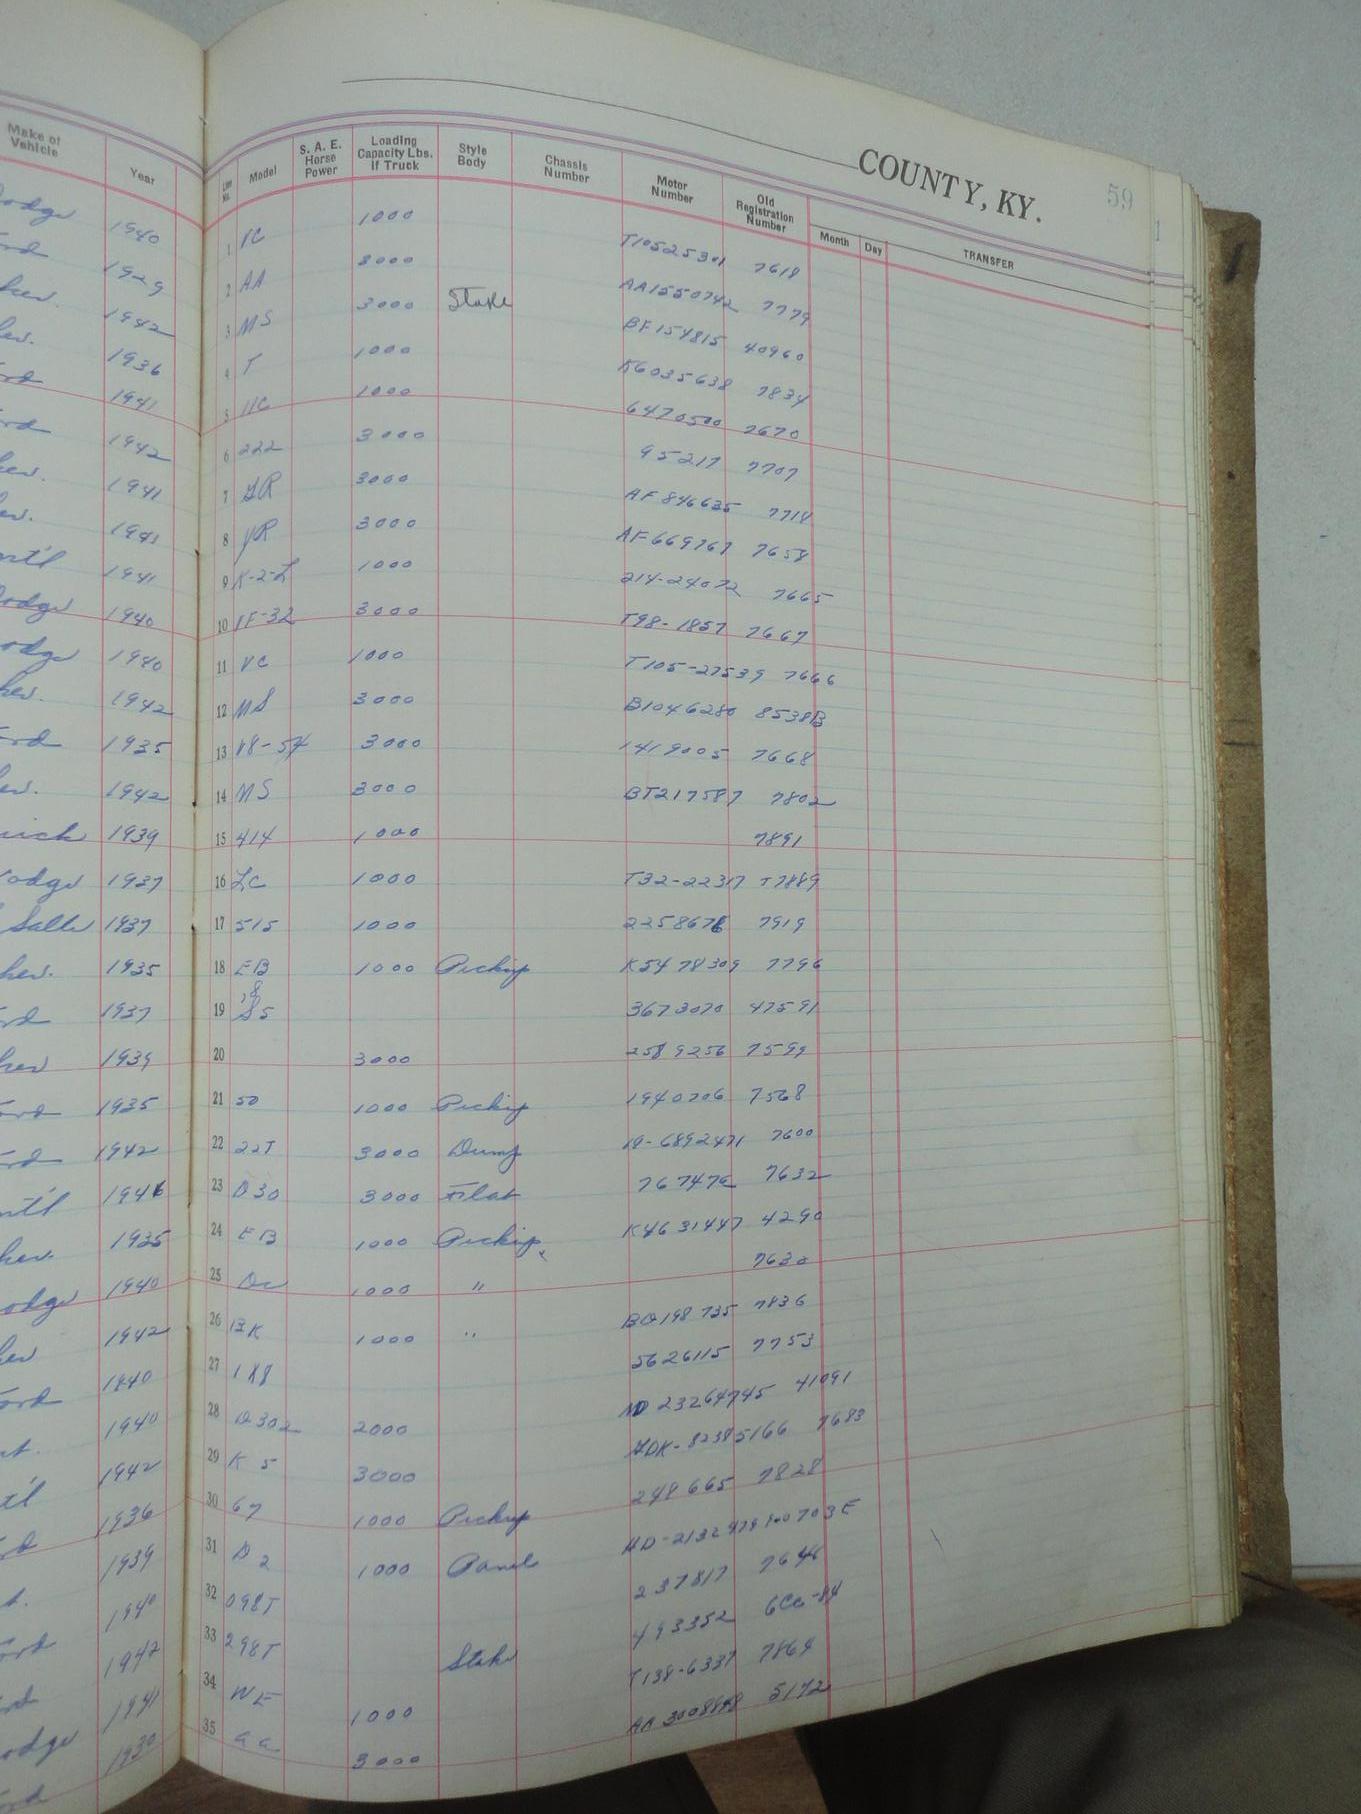 COUNTY, KY.
59
Make of Vehicle Year Line No. Model S. A. E. Horse Power Loading Capacity Lbs. If Truck Style Body Chassis Number Motor Number Old Registration Number Month Day TRANSFER
1940 1 VC 1000 T10525301 7618
1929 2 AA 3000 AA1550742 7779
1942 3 MS 3000 Stake BF154815 40960
1936 4 T 1000 K6035638 7834
1941 5 11C 1000 6470500 7670
1942 6 222 3000 95217 7707
1941 7 YR 3000 AF846635 7718
1941 8 YR 3000 AF669767 7658
1941 9 K-2-L 1000 214-24072 7665
1940 10 VF-32 3000 T98-1857 7667
1940 11 VC 1000 T105-27539 7666
1942 12 MS 3000 B1046280 8538B
1935 13 V8-51 3000 1419005 7668
1942 14 MS 3000 BT217587 7802
1939 15 414 1000 7891
1937 16 LC 1000 T32-22317 T7889
Salle 1937 17 515 1000 2258676 7919
1935 18 EB 1000 Pickup K5478309 7796
1937 19 85 3673070 47591
1939 20 3000 2589256 7599
1935 21 50 1000 Pickup 1940706 7568
1942 22 22T 3000 Dump 19-6892471 7600
1941 23 D30 3000 Flat 767476 7632
1935 24 EB 1000 Pickup K4631447 4290
1940 25 Dc 1000 " 7630
1942 26 BK 1000 " BD198735 7836
1940 27 188 5626115 7753
1940 28 D302 2000 HD 23264745 41091
1942 29 K 5 3000 HDK-82385166 7683
1936 30 67 1000 Pickup 248665 7828
1939 31 D 2 1000 Panel HD-2132979 100703E
1940 32 098T 237817 7646
1942 33 298T Stake 493352 6CC-84
1941 34 WF 1000 T138-6337 7864
1930 35 aa 3000 AA 3008898 5172